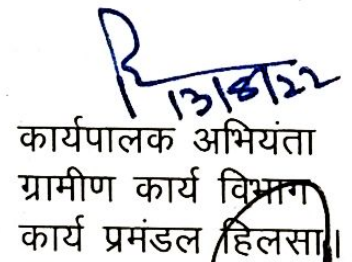 13/8/22
कार्यपालक अभियंता
ग्रामीण कार्य विभाग
कार्य प्रमंडल हिलसा।